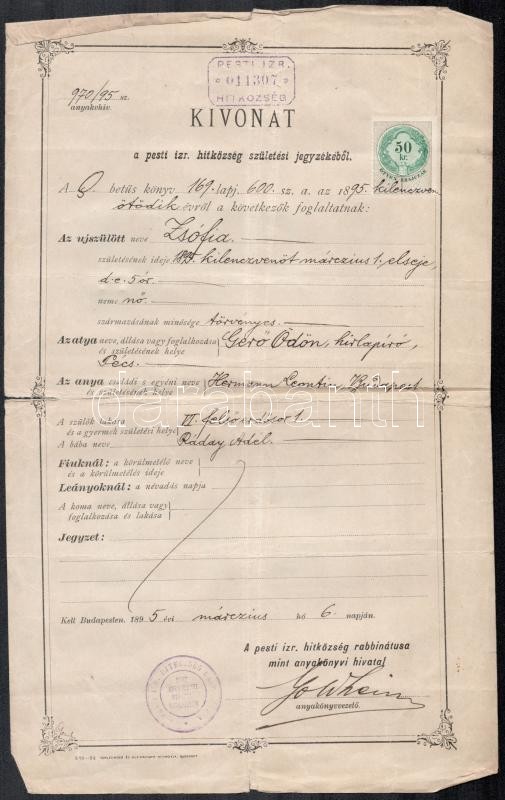 PESTI IZR.
011307
HITKÖZSÉG
970/95 sz.
anyakvkiv.
KIVONAT
50
kr.
a pesti izr. hitközség születési jegyzékéből.
A betűs könyv 169. lapj. 600. sz. a. az 1895. kilenczven
ötödik évről a következők foglaltatnak:
Az ujszülött neve Zsófia.
születésének ideje 1895. kilenczvenöt márczius 1. elseje,
d. e. 5 ór.
neme nő.
származásának minősége törvényes.
Az atya neve, állása vagy foglalkozása és születésének helye Gerő Ödön, hirlapíró,
Pécs.
Az anya családi s egyéni neve és születésének helye Hermann Leontin, Budapest
A szülők lakása és a gyermek születési helye VI. felsőerdősor 1.
A bába neve Raday Adél.
Fiuknál: a körülmetélő neve
és a körülmetélés ideje
Leányoknál: a névadás napja
A koma neve, állása vagy
foglalkozása és lakása
Jegyzet:
Kelt Budapesten, 1895 évi márczius hó 6. napján.
A pesti izr. hitközség rabbinátusa
mint anyakönyvi hivatal
anyakönyvvezető.
darabanth